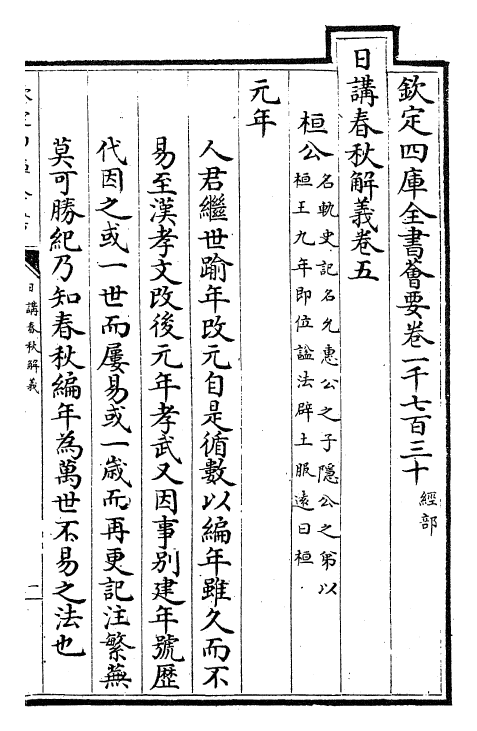 欽定四庫全書薈要卷一千七百三十 經部
日講春秋解義卷五
桓公 名軌史記名允惠公之子隱公之弟以
桓王九年即位諡法辟土服遠曰桓
元年
人君繼世踰年改元自是循數以編年雖久而不
易至漢孝文改後元年孝武又因事別建年號歷
代因之或一世而屢易或一歲而再更記注繁蕪
莫可勝紀乃知春秋編年為萬世不易之法也
日講春秋解義